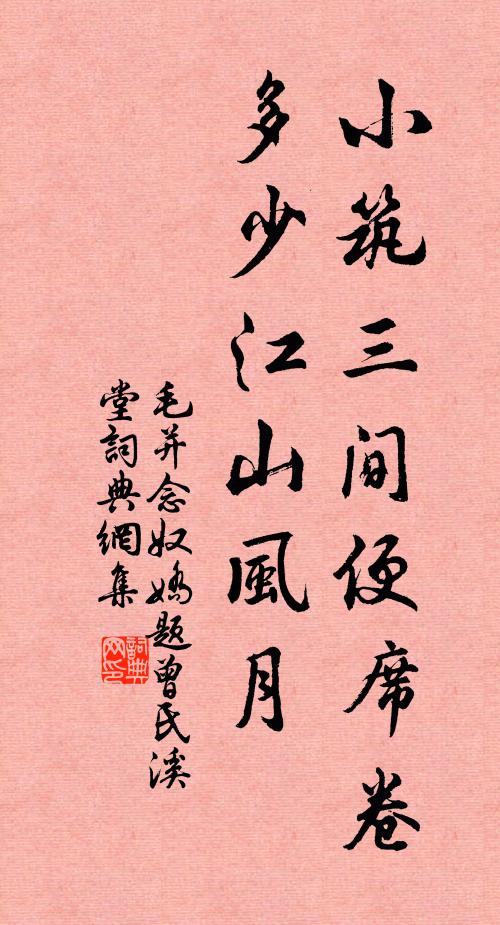 小筑三间便席卷
多少江山風月
毛并念奴嬌題曾氏溪
堂詞典網集
詞典
网印